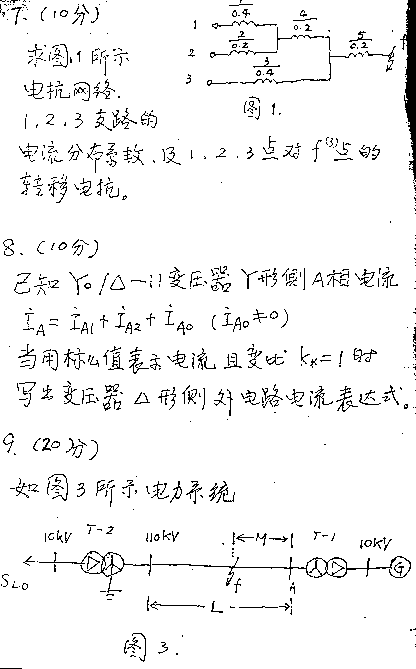 7. (10分)
求图1所示
电抗网络.
1, 2, 3 支路的
电流分布系数、及1、2、3点对f⁽³⁾点的
转移电抗。
1
2
3
1/0.4
2/0.2
3/0.4
4/0.2
5/0.2
图1.
8. (10分)
已知 Y₀/△-11变压器 Y形侧A相电流
İA = İA1 + İA2 + İA0 (İA0≠0)
当用标么值表示电流 且变比 k*=1 时
写出变压器 △形侧 外电路电流表达式。
9. (20分)
如图3所示电力系统
10kV T-2 110kV M T-1 10kV
SLD f A G
L
图3.